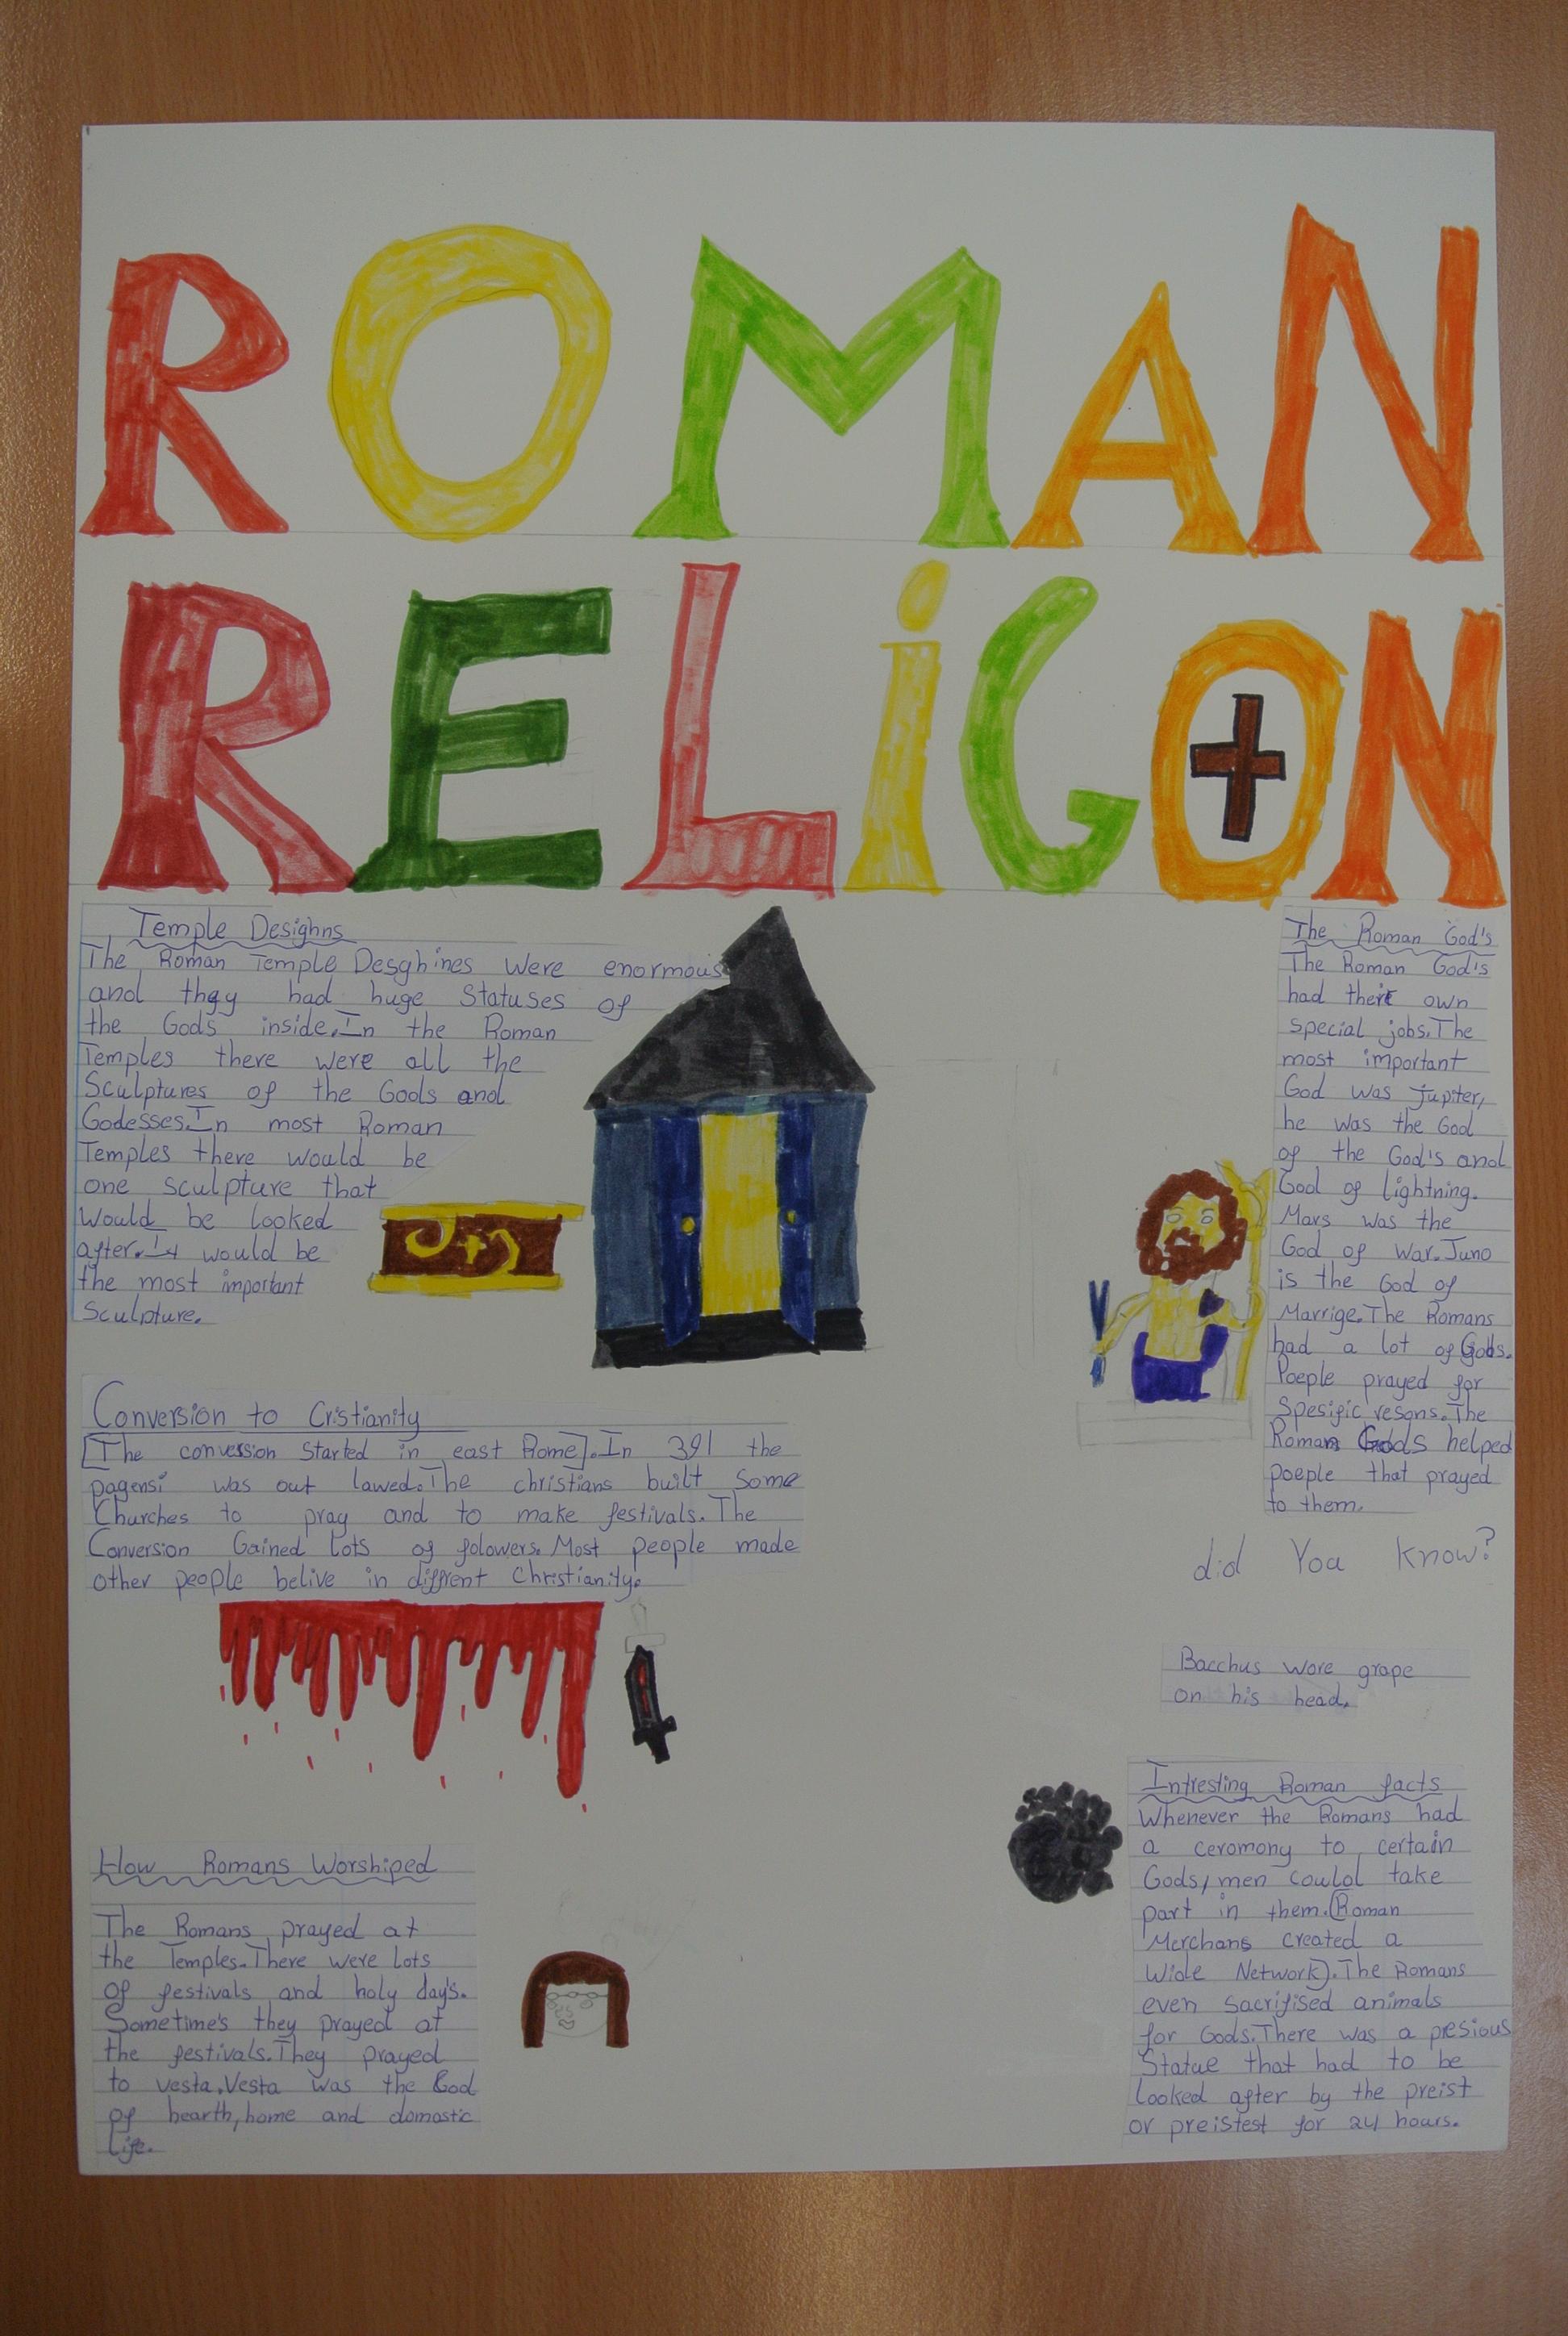 ROMAN
RELiGON
Temple Desighns
The Roman Temple Desghines were enormous
and they had huge Statuses of
the Gods inside.In the Roman
Temples there were all the
Sculptures of the Gods and
Godesses.In most Roman
Temples there would be
one sculpture that
Would be looked
after.It would be
the most important
Sculpture.
Conversion to Cristianity
[The conversion Started in east Rome].In 391 the
pagens was out lawed.The christians built Some
Churches to pray and to make festivals.The
Conversion Gained lots of folowers.Most people made
other people belive in diffrent Christianity.
How Romans Worshiped
The Romans prayed at
the Temples.There were lots
of festivals and holy day's.
Sometime's they prayed at
the festivals.They prayed
to vesta.Vesta was the God
of hearth,home and domastic
Life.
The Roman God's
The Roman God's
had their own
special jobs.The
most important
God was jupiter,
he was the God
of the God's and
God of lightning.
Mars was the
God of War.Juno
is the God of
Marrige.The Romans
had a lot of Gods.
Poeple prayed for
Spesific resons.The
Roman Gods helped
poeple that prayed
to them.
did You know?
Bacchus wore grape
on his head.
Intresting Roman facts
Whenever the Romans had
a ceromony to certain
Gods,men could take
part in them.(Roman
Merchans created a
Wide Network).The Romans
even sacrifised animals
for Gods.There was a presious
Statue that had to be
looked after by the preist
or preistest for 24 hours.